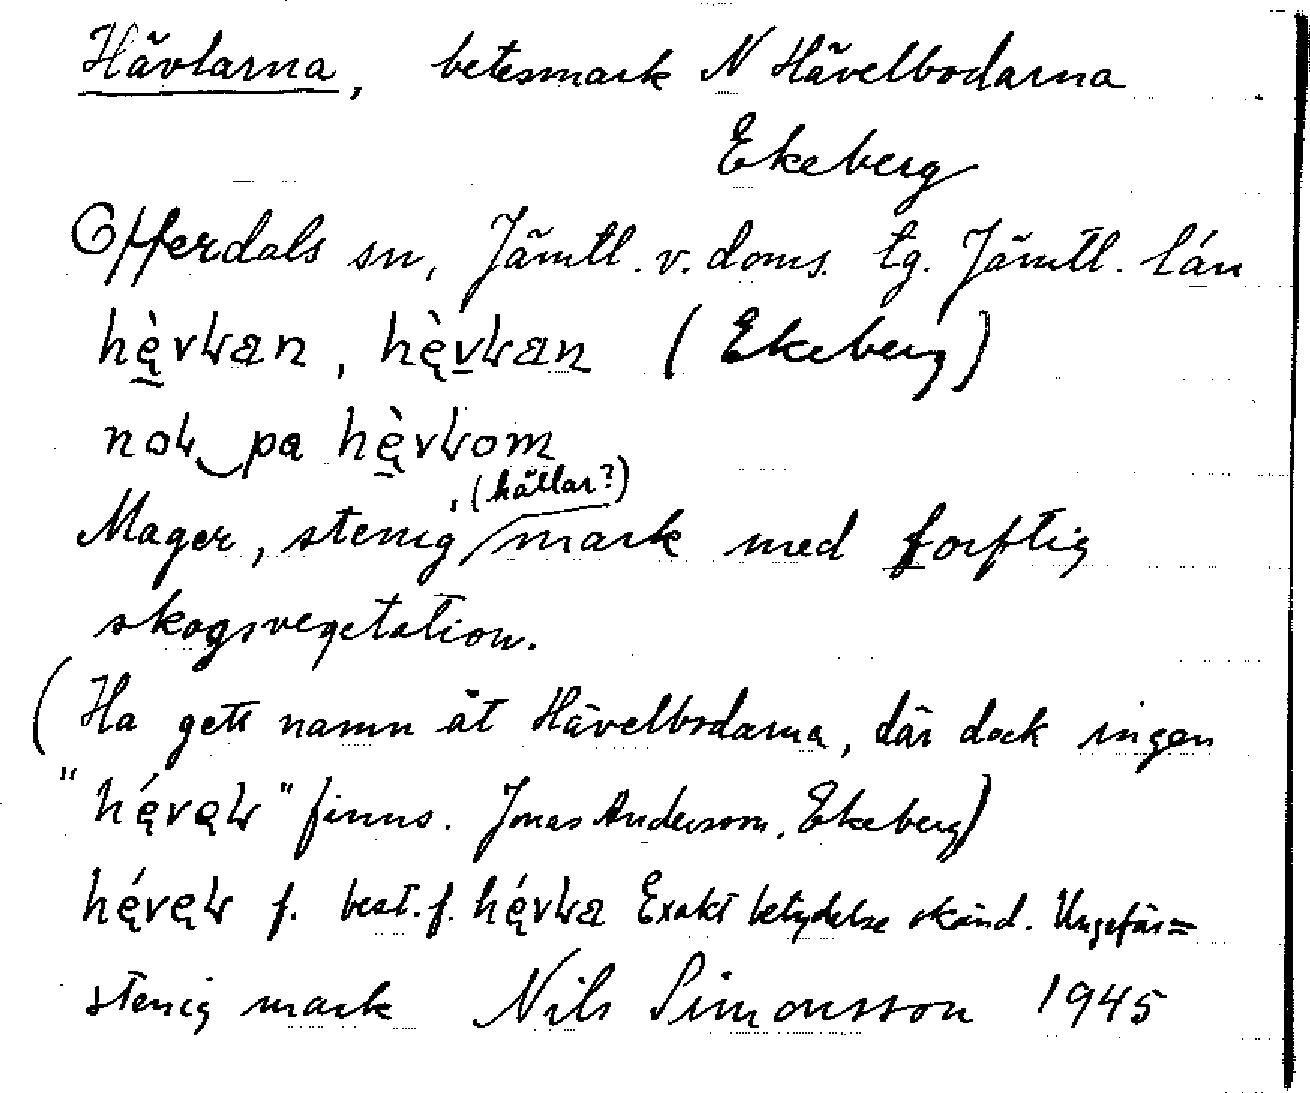 Hävlarna, betesmark N Hävelbodarna
Ekeberg
Offerdals sn, Jämtl. v. doms. tg. Jämtl. län
hę̀vƚan, hę̀vƚan (Ekeberg)
noƚ‿pa hę̀vƚom
, (hällar?)
Mager, stenig mark med torftig
skogsvegetation.
(Ha gett namn åt Hävelbodarna, där dock ingen
"hę́vęƚ" finns. Jonas Andersson, Ekeberg)
hę́vęƚ f. best. f. hę́vƚa Exakt betydelse okänd. Ungefär =
stenig mark Nils Simonsson 1945